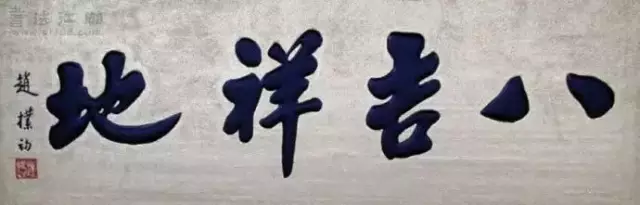 八吉祥地
趙樸初
書法江湖